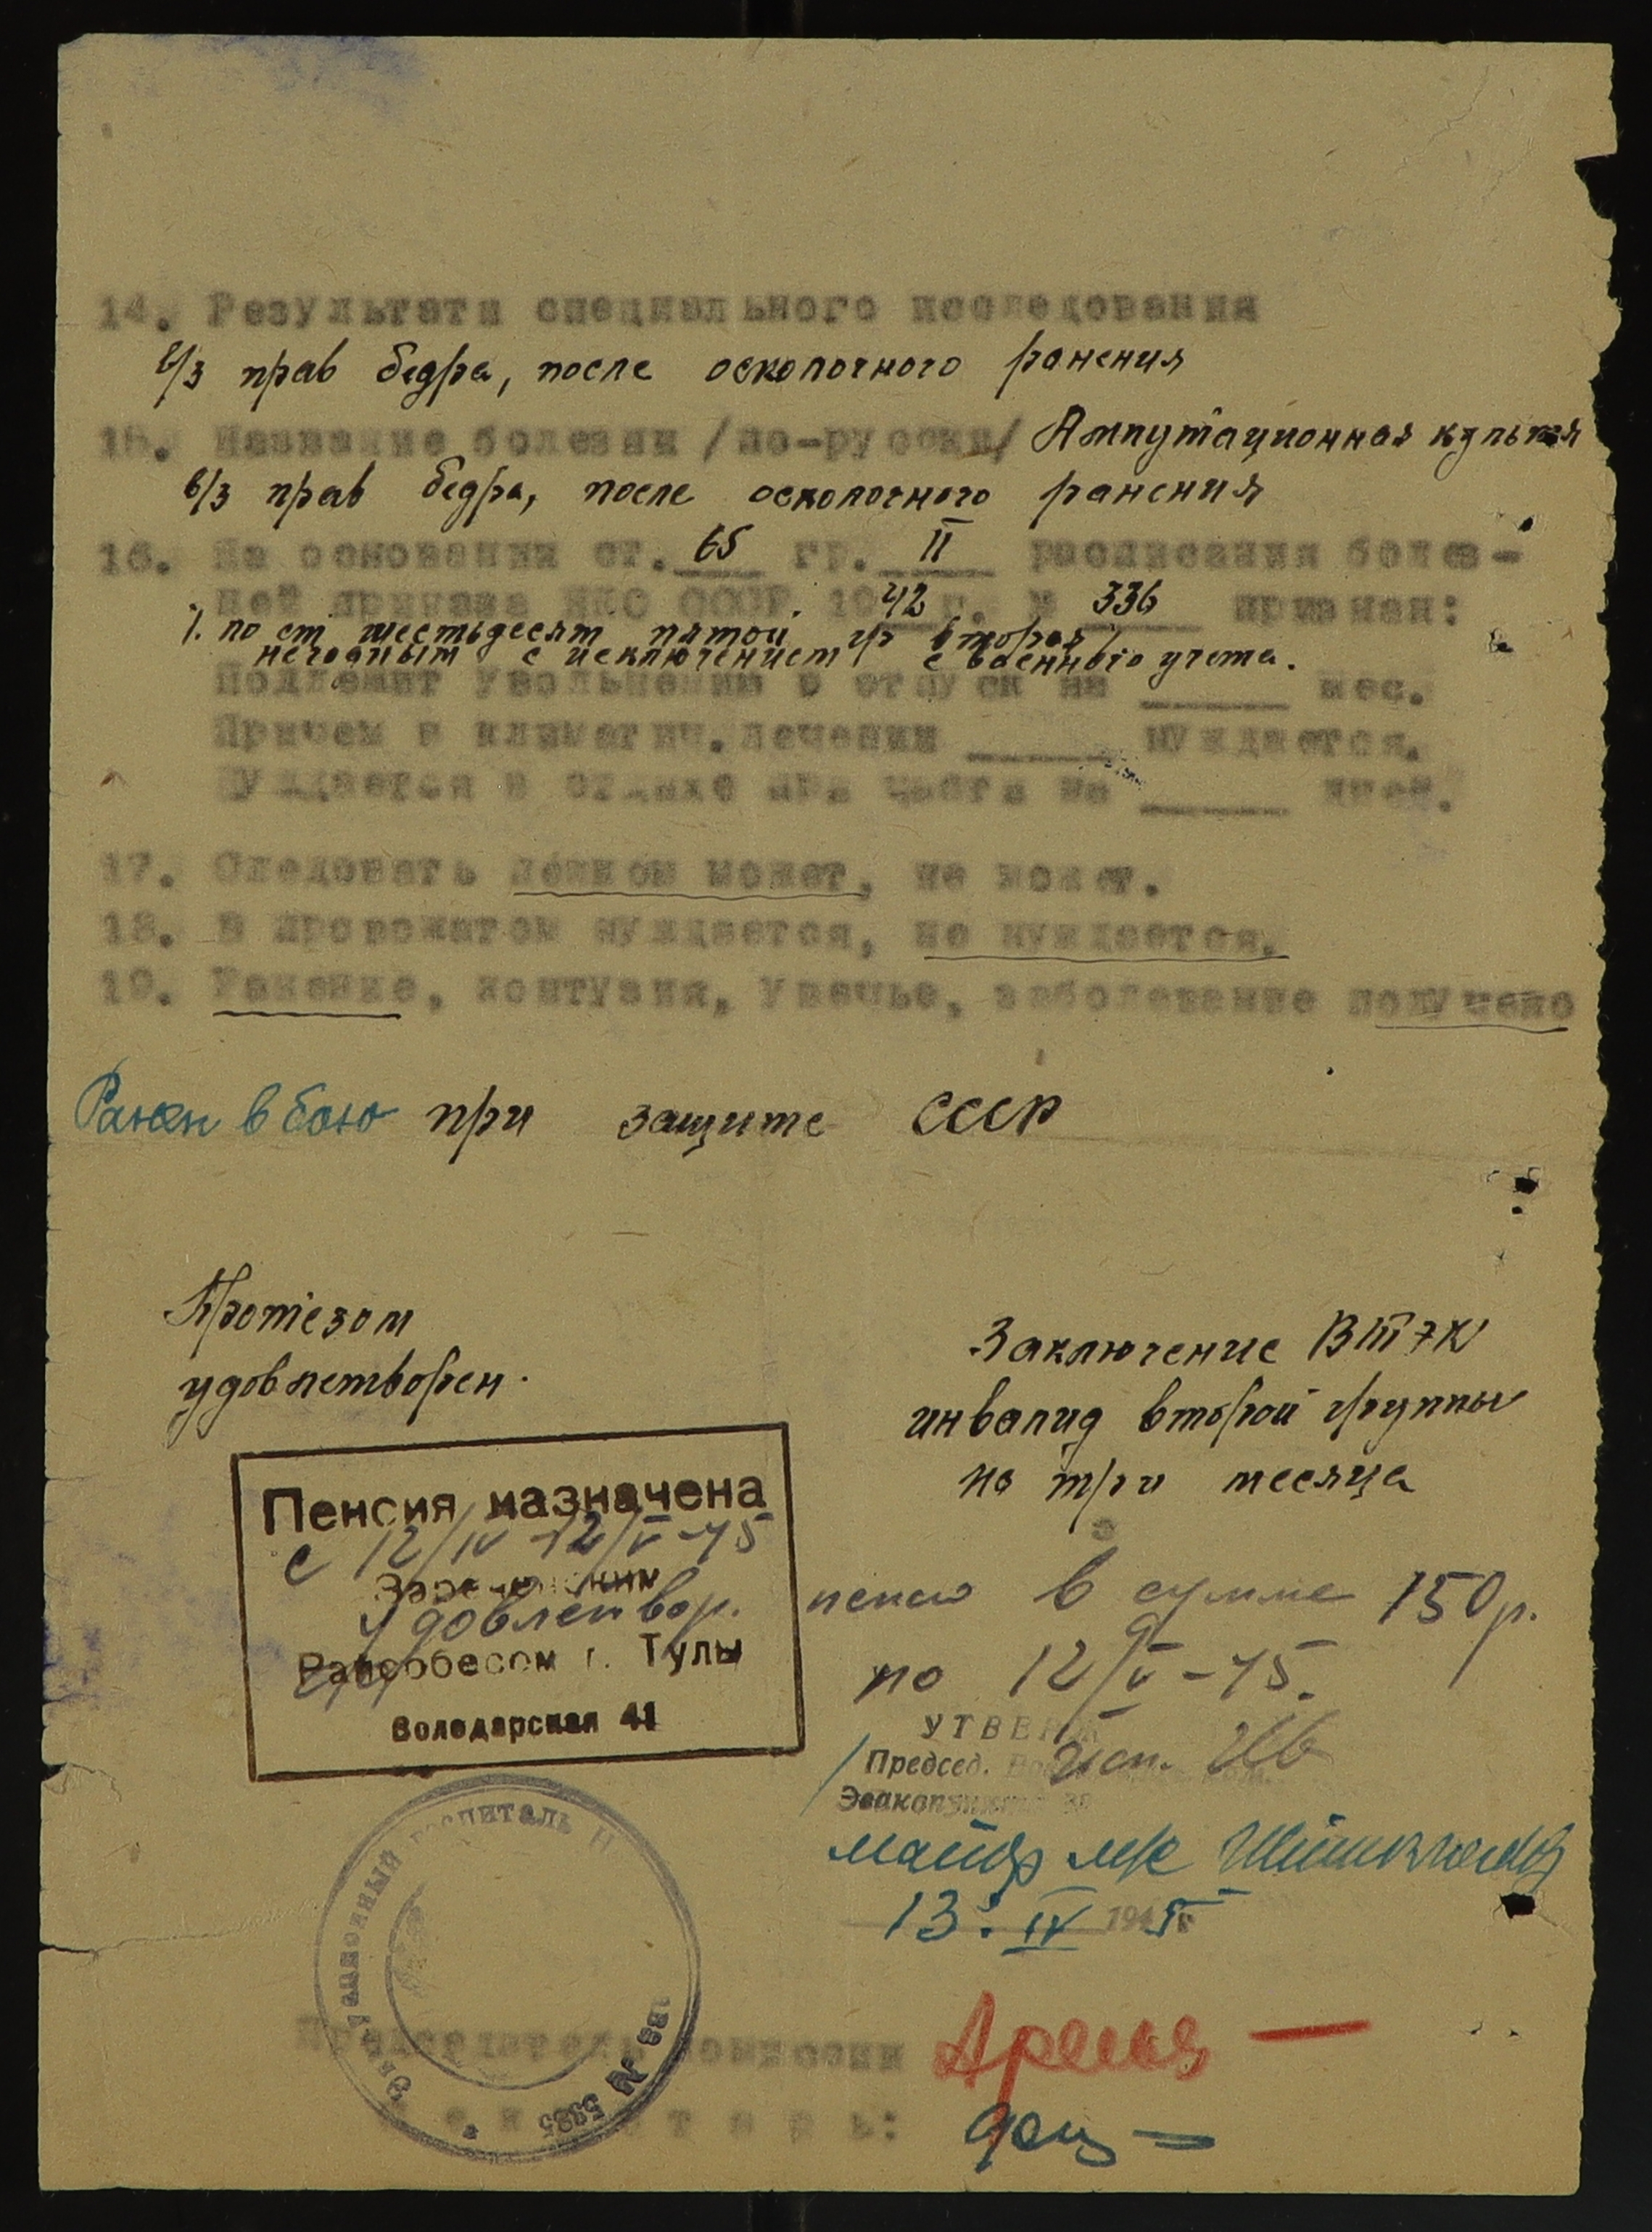 14. Результати специального исследования
в/з прав бедра, после осколочного ранения
15. Название болезни /по-русски/ Ампутационная культя
в/з прав бедра, после осколочного ранения
16. На основании ст. 65 гр. II расписания болез-
ней приказа НКО СССР. 1942 г. № 336 признан:
/. по ст шестьдесят пятой гр вторая/
негодным с исключением с военного учета.
Подлежит увольнению в отпуск на ____ мес.
Причем в климатич. лечении ____ нуждается.
Нуждается в отдыхе при части на ____ дней.
17. Следовать пешком может, не может.
18. В провожатом нуждается, не нуждается.
19. Ранение, контузия, увечье, заболевание получено
Ранен в бою при защите СССР
Протезом
удовлетворен.
Заключение ВТЭК
инвалид второй группы
на три месяца
Пенсия назначена
с 12/IV-12/V-45
Зареченским
Удовлетвор.
Райсобесом г. Тулы
Володарская 41
в сумме 150 р.
по 12/V-45.
УТВЕРЖ
Председ.
Эвакопункта
майор м/с
13. IV 1945г
Эвакуационный госпиталь №
5385
Председатель комиссии
Секретарь: